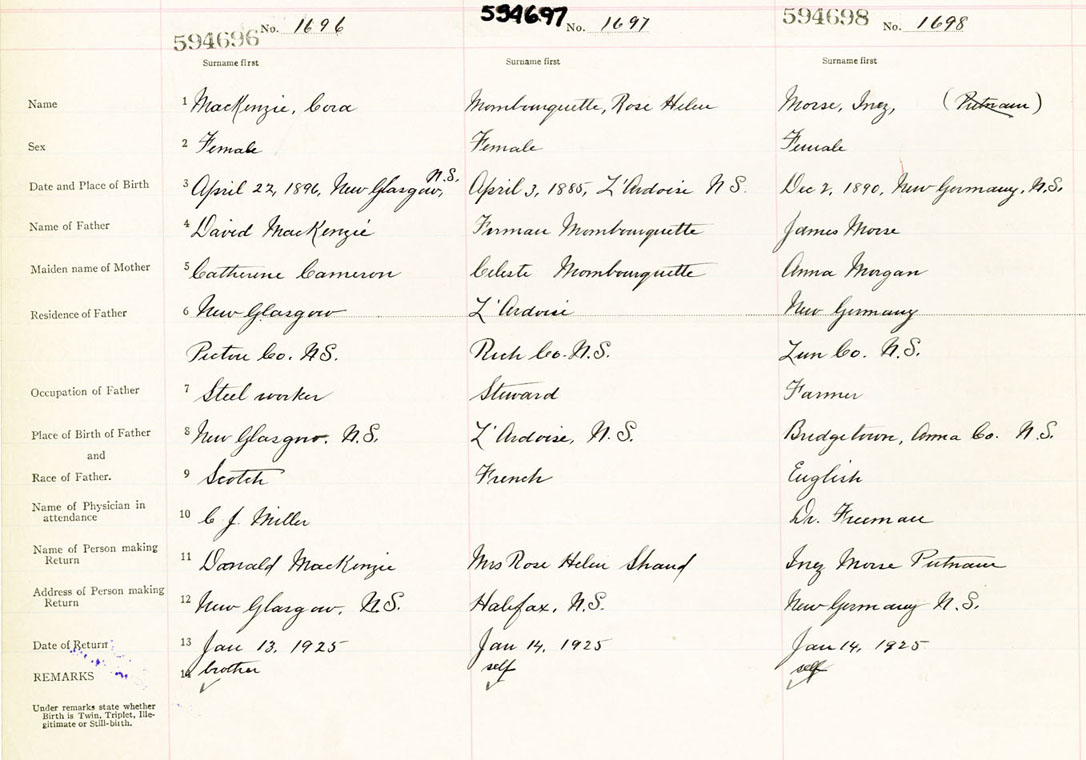 594696 No. 1696 594697 No. 1697 594698 No. 1698
Surname first Surname first Surname first
Name 1 MacKenzie, Cora Mombourquette, Rose Helen Morse, Inez, (Putnam)
Sex 2 Female Female Female
Date and Place of Birth 3 April 22, 1896, New Glasgow, N.S. April 3, 1885, L'Ardoise N S. Dec 2, 1890, New Germany, N.S.
Name of Father 4 David MacKenzie Firman Mombourquette James Morse
Maiden name of Mother 5 Catherine Cameron Celeste Mombourquette Anna Morgan
Residence of Father 6 New Glasgow L'Ardoise New Germany
Pictou Co. N.S. Rich Co. N.S. Lun Co. N.S.
Occupation of Father 7 Steel worker Steward Farmer
Place of Birth of Father 8 New Glasgow, N.S. L'Ardoise, N.S. Bridgetown, Anna Co. N.S.
and
Race of Father. 9 Scotch French English
Name of Physician in attendance 10 C J. Miller Dr. Freeman
Name of Person making Return 11 Donald MacKenzie Mrs Rose Helen Shand Inez Morse Putnam
Address of Person making Return 12 New Glasgow, N.S. Halifax, N.S. New Germany N.S.
Date of Return 13 Jan 13, 1925 Jan 14, 1925 Jan 14, 1925
REMARKS 14 brother self self
Under remarks state whether
Birth is Twin, Triplet, Ille-
gitimate or Still-birth.